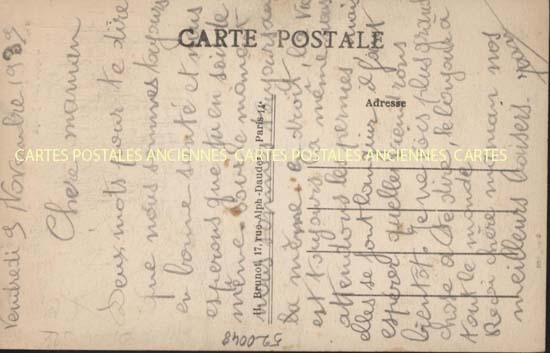 CARTE POSTALE
Adresse
H. Brunot, 17, rue Alph-Daudet, Paris-14e
CARTES POSTALES ANCIENNES CARTES POSTALES ANCIENNES CARTES POSTALES ANCIENNES
Vendredi 3 Novembre 1939
Chère maman
Deux mots pour te dire
que nous sommes toujours
en bonne santé et nous
esperons que tu en sois de
même. Pour le moment
toujours au
la même endroit la vie
est toujours la même nous
attendons les permes mais
elles se font languir il faut
espérer quelles viendrons
bientot. Je ne vois plus grand
chose a te dire, le bonjour à
tout le monde.
Reçoi chère maman nos
meilleurs baisers.
590048